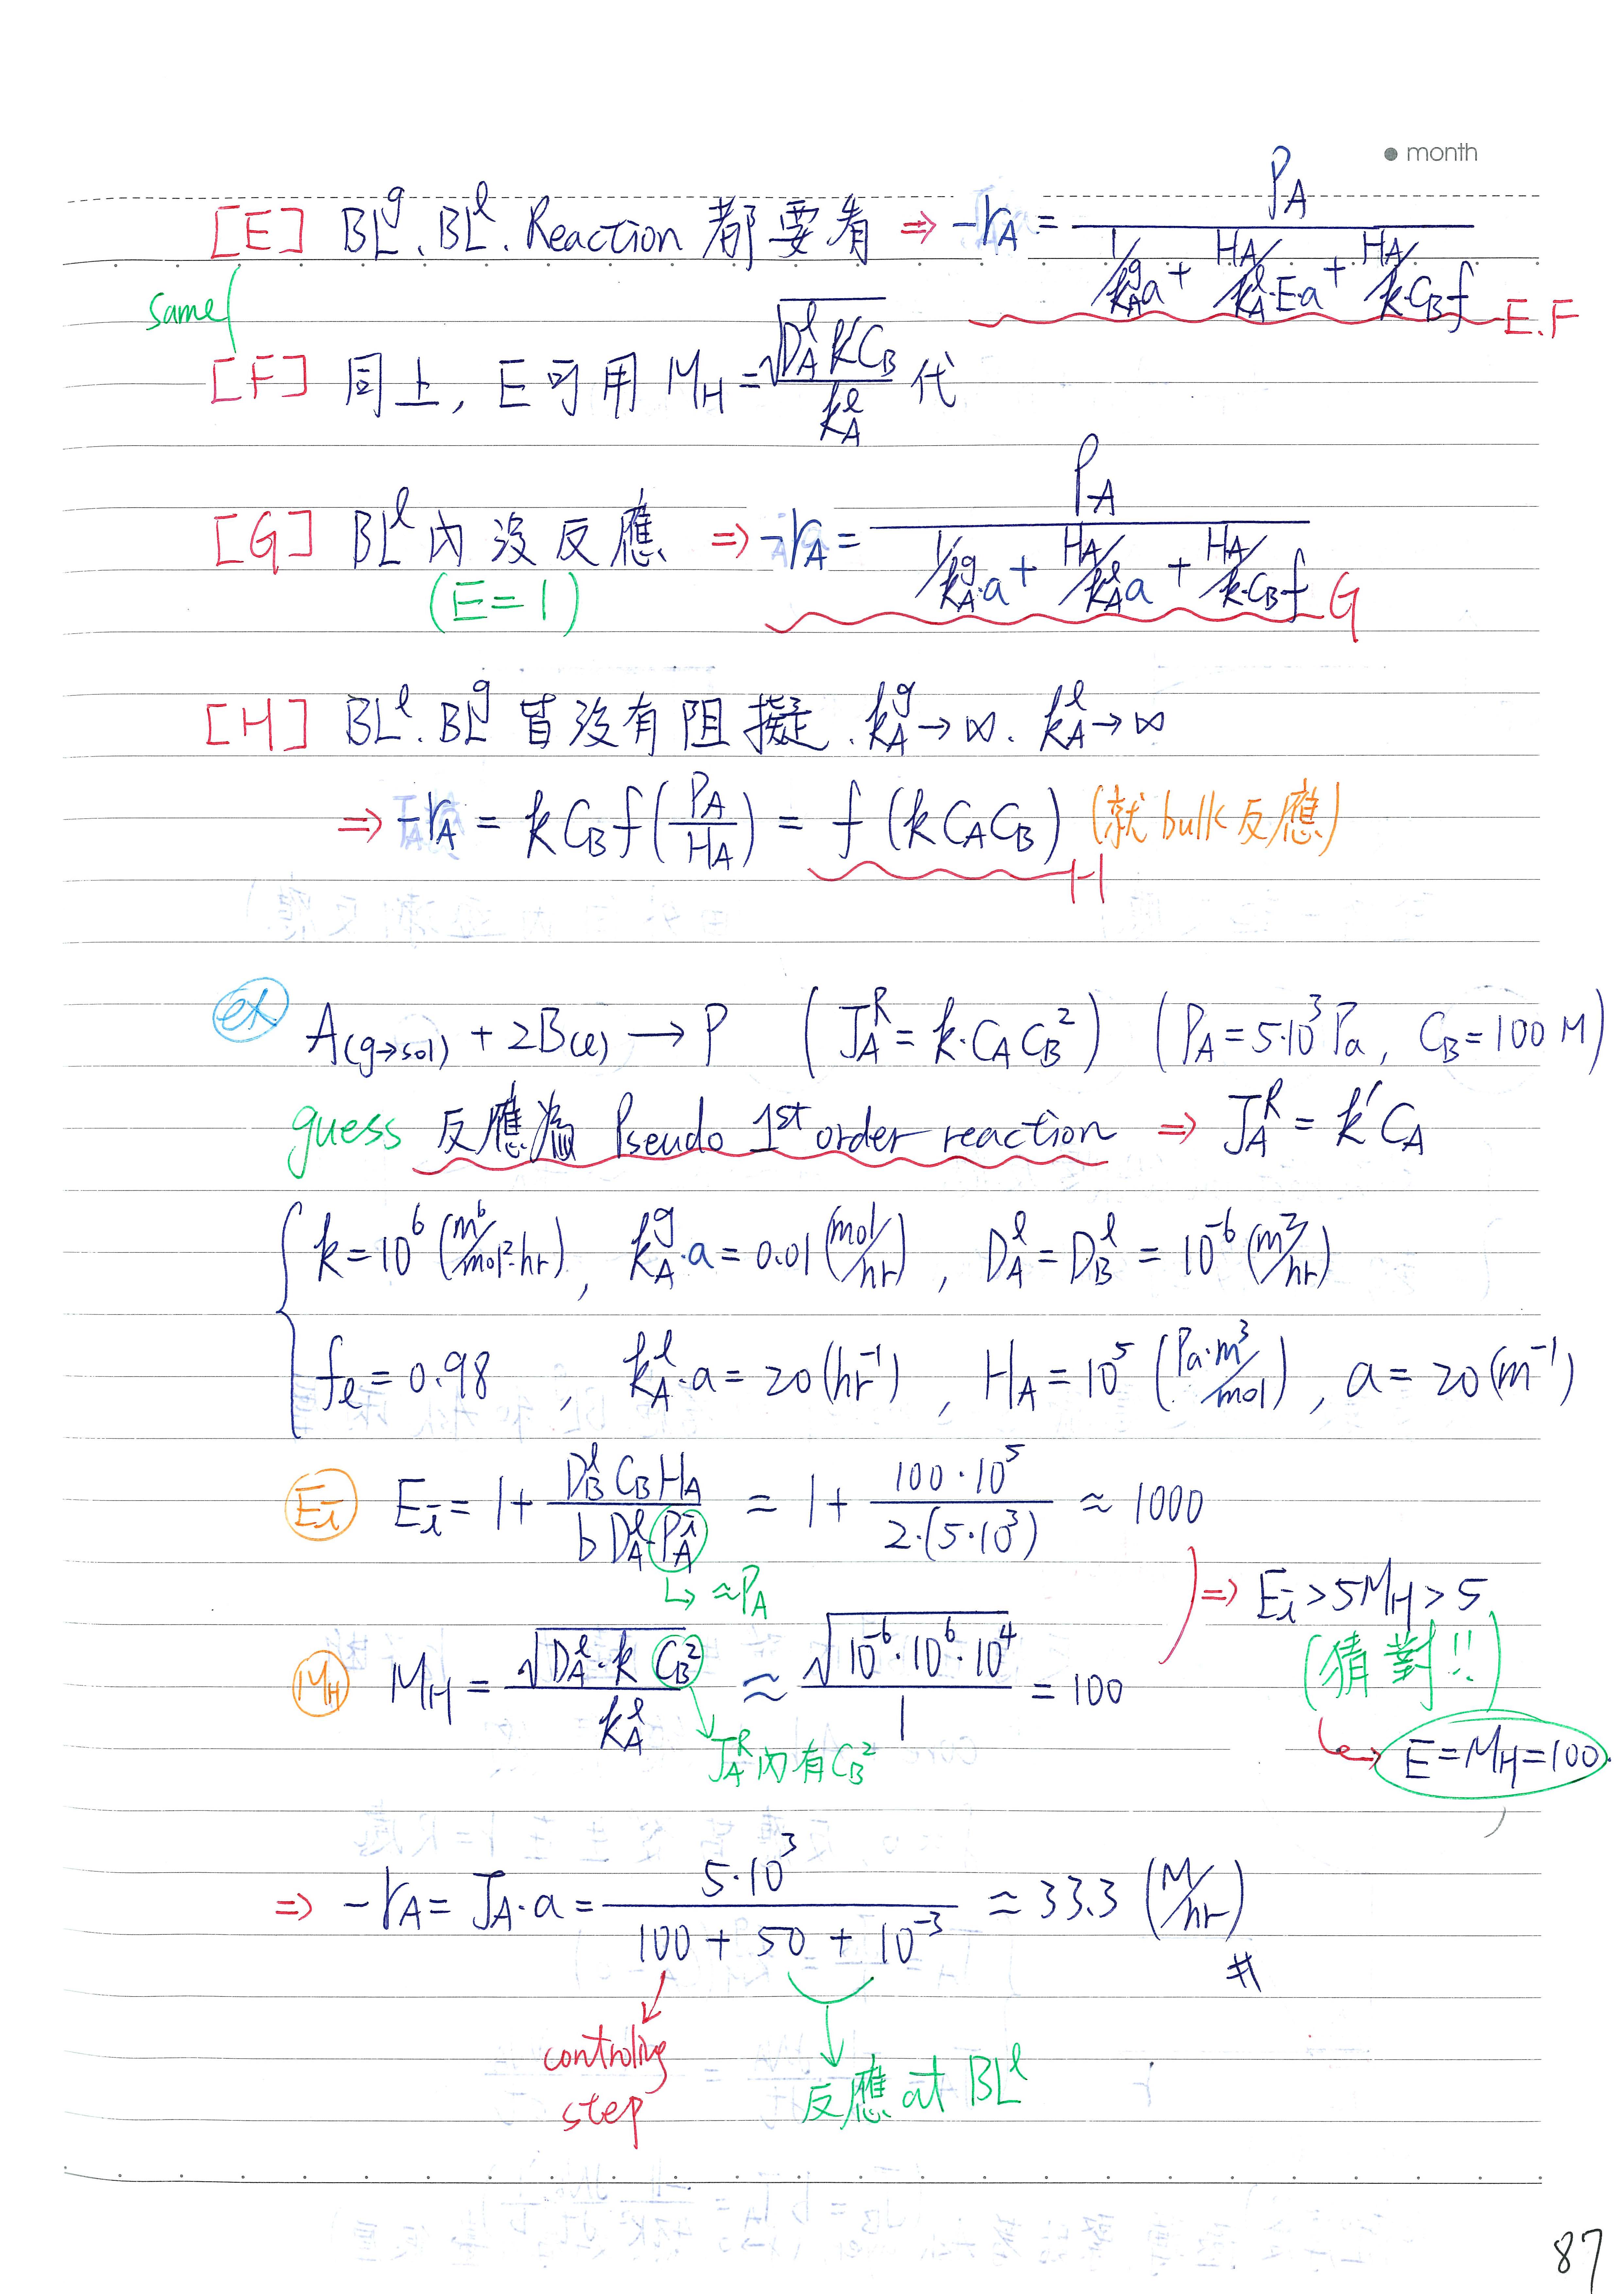 ● month
[E] BL^g、BL^l、Reaction 都要看 ⇒ -r_A = P_A / (1/(k_A^g a) + H_A/(k_A^l·E·a) + H_A/(k·C_B f)) E.F
same
[F] 同上, E可用 M_H = √(D_A^l k C_B) / k_A^l 代
[G] BL^l 內沒反應 ⇒ -r_A = P_A / (1/(k_A^g·a) + H_A/(k_A^l a) + H_A/(k·C_B f)) G
(E=1)
[H] BL^l、BL^g 皆沒有阻擬、k_A^g → ∞、k_A^l → ∞
⇒ -r_A = k C_B f (P_A/H_A) = f (k C_A C_B) (就 bulk 反應) H
ex A(g→sol) + 2B(l) → P (J_A^R = k·C_A C_B^2) (P_A = 5·10^3 Pa, C_B = 100 M)
guess 反應為 Pseudo 1st order reaction ⇒ J_A^R = k' C_A
k = 10^6 (m^6/mol^2·hr), k_A^g·a = 0.01 (mol/hr), D_A^l = D_B^l = 10^-6 (m^2/hr)
f_l = 0.98, k_A^l·a = 20 (hr^-1), H_A = 10^5 (Pa·m^3/mol), a = 20 (m^-1)
Ei E_i = 1 + D_B^l C_B H_A / (b D_A^l P_A^i) = 1 + 100·10^5 / (2·(5·10^3)) ≈ 1000
↳ ≈P_A
⇒ E_i > 5M_H > 5
(猜對!!)
M_H M_H = √(D_A^l·k C_B^2) / k_A^l ≈ √(10^-6·10^6·10^4) / 1 = 100
J_A^R 內有 C_B^2
E = M_H = 100
⇒ -r_A = J_A·a = 5·10^3 / (100 + 50 + 10^-3) ≈ 33.3 (M/hr) #
controling
step
反應 at BL^l
87